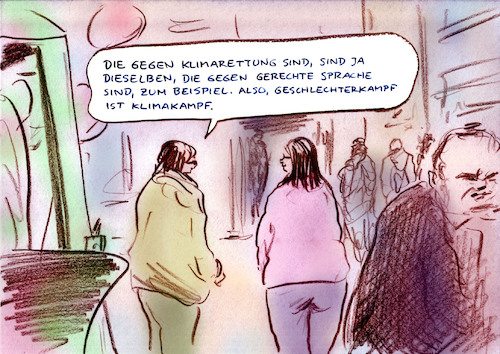 DIE GEGEN KLIMARETTUNG SIND, SIND JA
DIESELBEN, DIE GEGEN GERECHTE SPRACHE
SIND, ZUM BEISPIEL. ALSO, GESCHLECHTERKAMPF
IST KLIMAKAMPF.